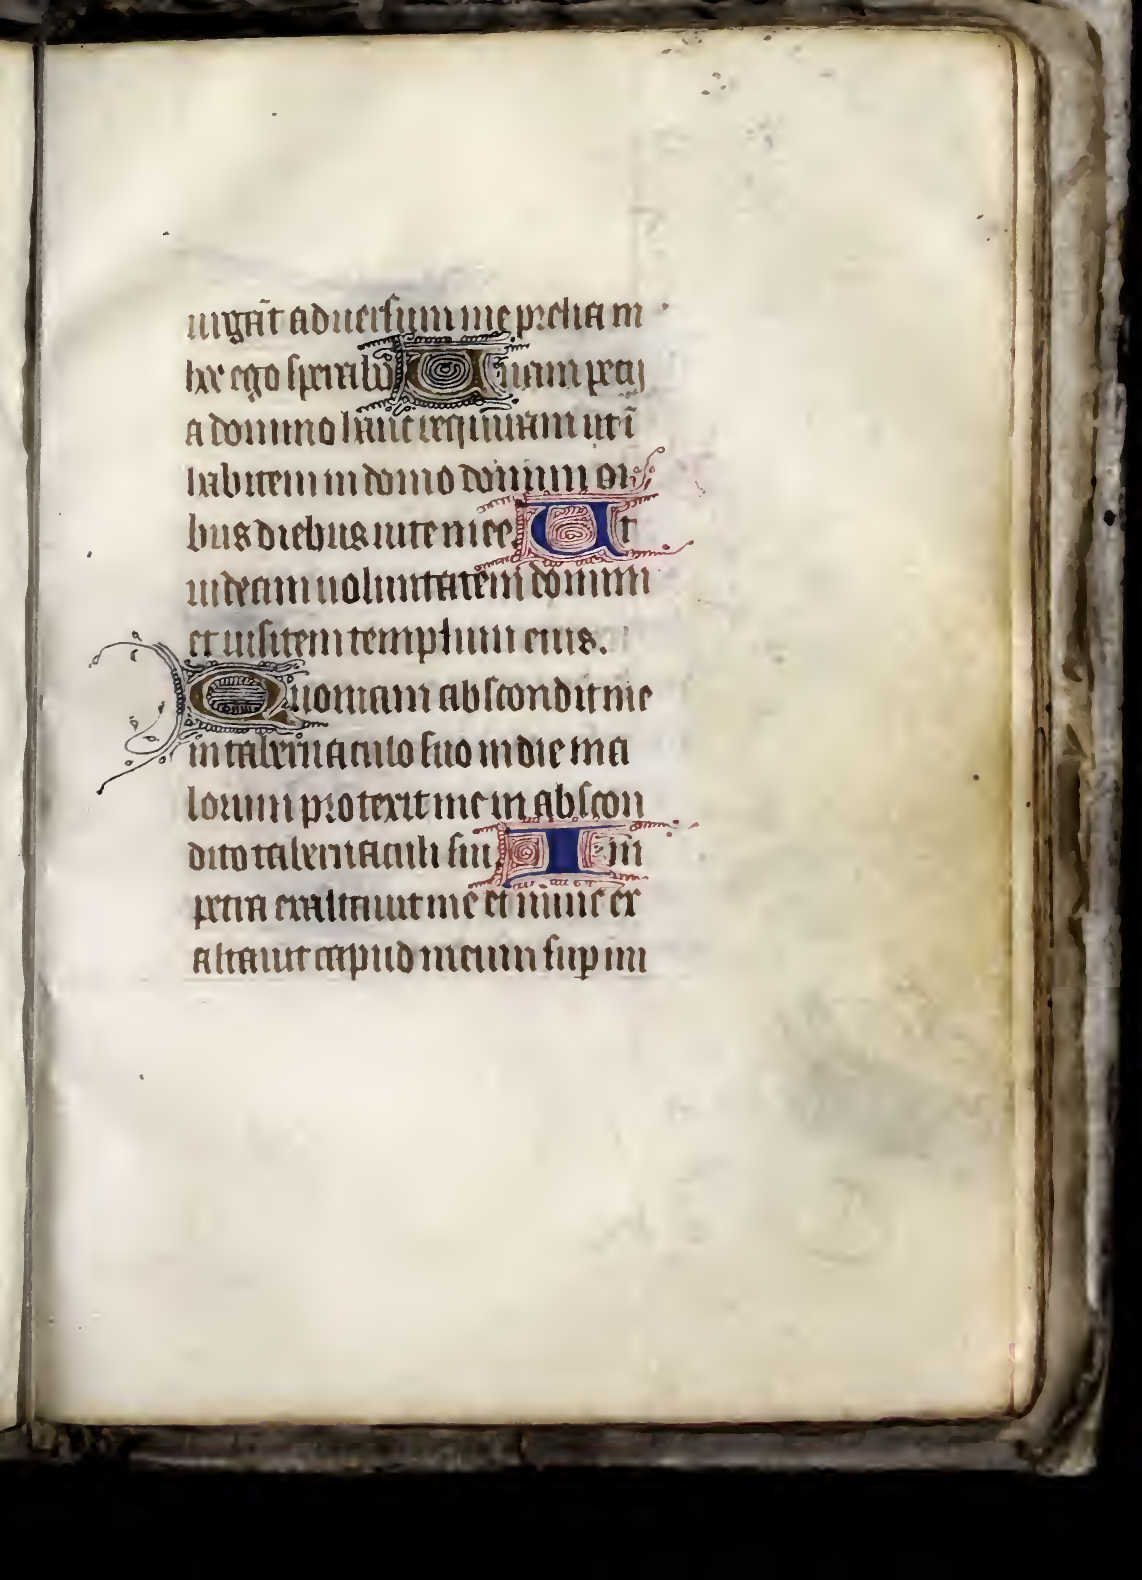 urgāt aduersum me prelia in
hoc ego sperabo Unam pecij
a domino hanc requiram ut ī
habitem in domo domini om
bus diebus uite mee. Ut
uideam uoluntatem domini
et uisitem templum eius.
Quoniam abscondit me
in tabernaculo suo in die ma
lorum protexit me in abscon
dito tabernaculi sui In
petra exaltauit me et nunc ex
altauit capud meum sup ini